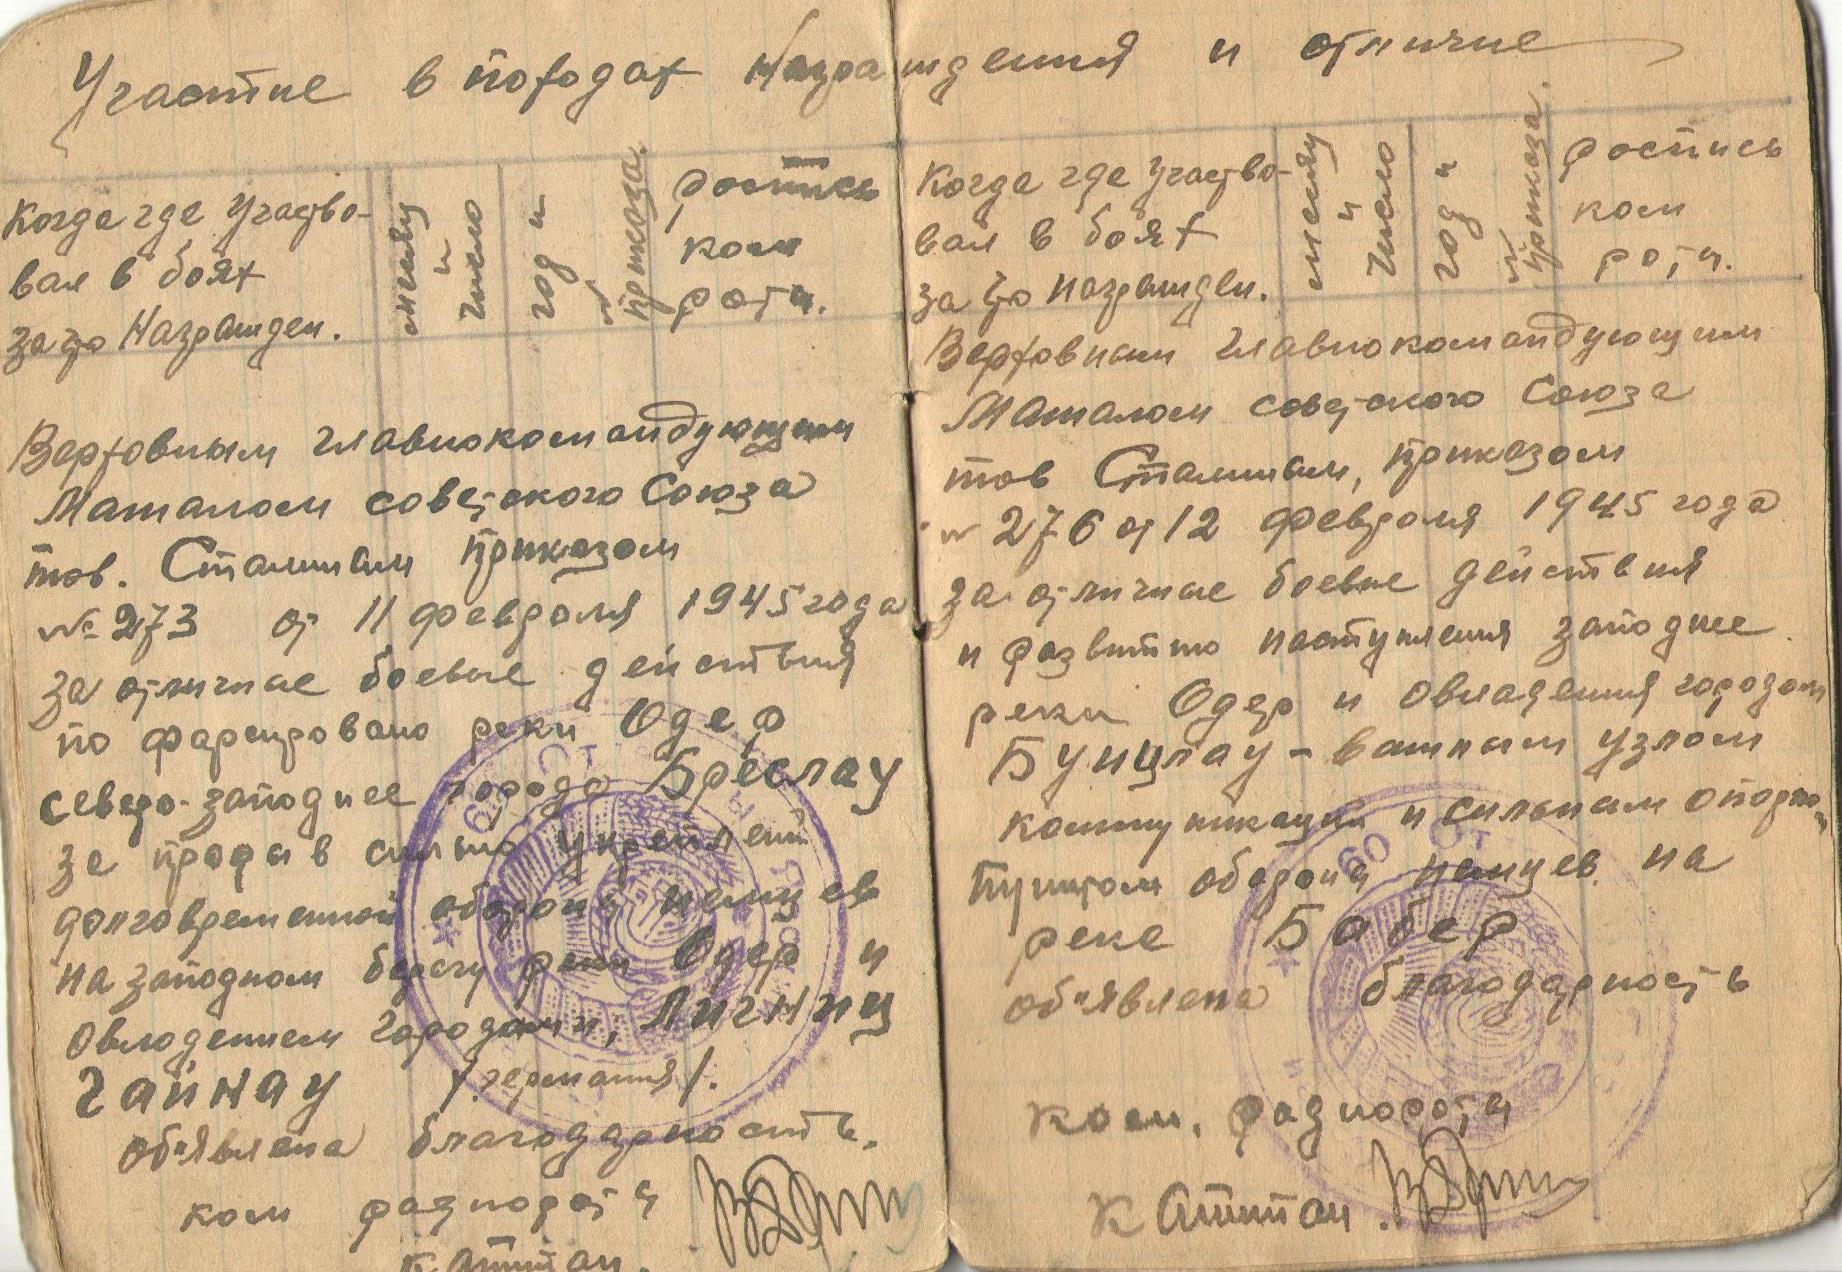 Участие в походах Награждения и отличие
Когда где участво-
вал в боях
за что Награжден.
месяц
и
число
год и
№
приказа.
роспись
ком
роты.
Верховным главнокомандующим
Маршалом советского Союза
тов. Сталиным приказом
№ 273 от 11 февраля 1945 года
за отличные боевые действия
по фарсировано реки Одер
северо-западнее города Бреслау
за прорыв сильно укреплений
долговременной обороны немцев
на западном берегу реки Одер и
овлодением городами, Лигниц
Гайнау /германия/.
об"явлена благодарность.
ком радиороты
Капитан.
Когда где участво-
вал в боях
за что награжден.
месяц
и
число
год и
№
приказа.
роспись
ком
роты.
Верховным главнокомандующим
Маршалом советского Союза
тов Сталиным, приказом
№ 276 от 12 февраля 1945 года
за отличные боевые действия
и развитию наступления западнее
реки Одер и овладения городом
Бунцлау - важным узлом
коммуникаций и сильным опорным
пунктом обороны немцев на
реке Бобер
об"явлена благодарность
ком. радиороты
Капитан.